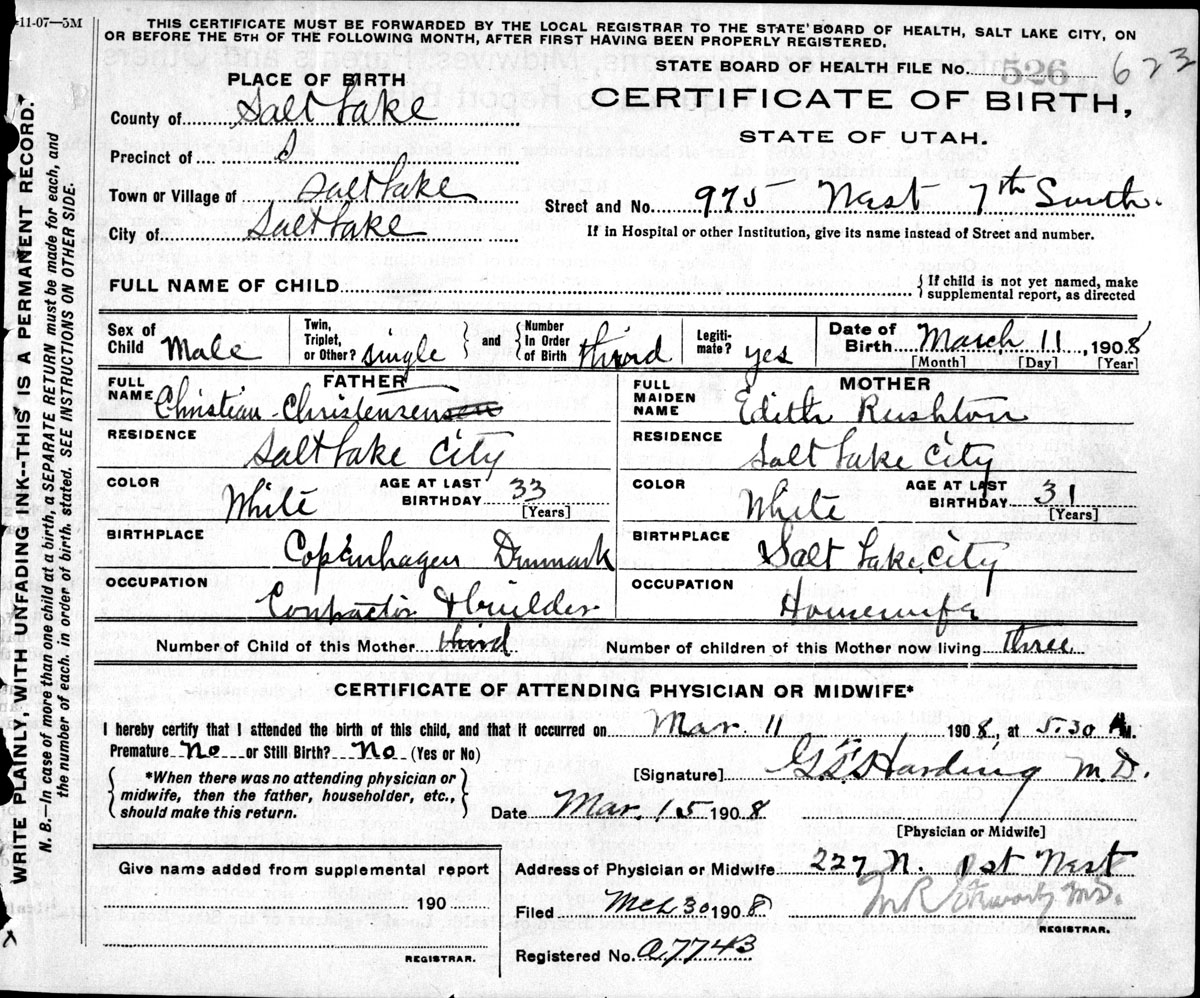 11-07—5M
THIS CERTIFICATE MUST BE FORWARDED BY THE LOCAL REGISTRAR TO THE STATE BOARD OF HEALTH, SALT LAKE CITY, ON
OR BEFORE THE 5TH OF THE FOLLOWING MONTH, AFTER FIRST HAVING BEEN PROPERLY REGISTERED.
STATE BOARD OF HEALTH FILE No. 526 623
PLACE OF BIRTH
CERTIFICATE OF BIRTH,
STATE OF UTAH.
County of Salt Lake
Precinct of
Town or Village of Salt Lake
City of Salt Lake
Street and No. 975 West 7th South.
If in Hospital or other Institution, give its name instead of Street and number.
FULL NAME OF CHILD
{ If child is not yet named, make
supplemental report, as directed
Sex of Child Male
Twin, Triplet, or Other? single } and { Number In Order of Birth third
Legiti-mate? yes
Date of Birth March 11, 1908
[Month] [Day] [Year]
FATHER
FULL NAME Christian Christensen
RESIDENCE Salt Lake City
COLOR White AGE AT LAST BIRTHDAY 33
[Years]
BIRTHPLACE Copenhagen Denmark
OCCUPATION Contractor & builder
MOTHER
FULL MAIDEN NAME Edith Rushton
RESIDENCE Salt Lake City
COLOR White AGE AT LAST BIRTHDAY 31
[Years]
BIRTHPLACE Salt Lake City
OCCUPATION Housewife
Number of Child of this Mother third Number of children of this Mother now living three
CERTIFICATE OF ATTENDING PHYSICIAN OR MIDWIFE*
I hereby certify that I attended the birth of this child, and that it occurred on Mar. 11 1908, at 5.30 A M.
Premature No or Still Birth? No (Yes or No)
{ *When there was no attending physician or
midwife, then the father, householder, etc.,
should make this return. }
[Signature] Harding M.D.
Date Mar. 15 1908
[Physician or Midwife]
Address of Physician or Midwife 227 N. 1st West
Filed Mch 30 1908
M.D.
REGISTRAR.
Registered No. A7743
Give name added from supplemental report
190
REGISTRAR.
WRITE PLAINLY, WITH UNFADING INK--THIS IS A PERMANENT RECORD.
N. B.—In case of more than one child at a birth, a SEPARATE RETURN must be made for each, and
the number of each, in order of birth, stated. SEE INSTRUCTIONS ON OTHER SIDE.